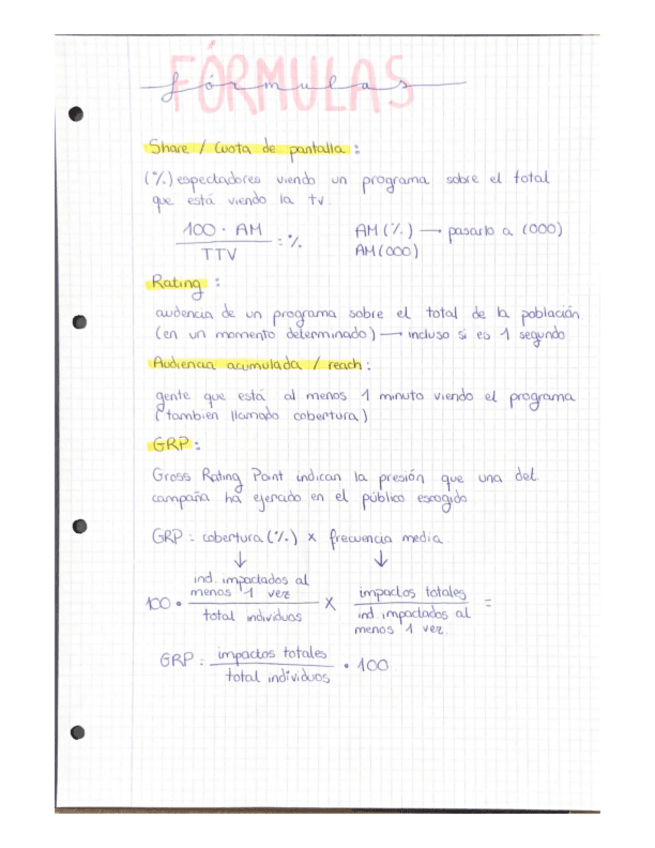 FÓRMULAS
fórmulas
Share / Cuota de pantalla :
(%) espectadores viendo un programa sobre el total
que está viendo la tv.
100 · AM / TTV = %
AM (%) → pasarlo a (000)
AM (000)
Rating :
audiencia de un programa sobre el total de la población
(en un momento determinado) → incluso si es 1 segundo
Audiencia acumulada / reach :
gente que está al menos 1 minuto viendo el programa
(también llamado cobertura)
GRP :
Gross Rating Point indican la presión que una del
campaña ha ejercado en el público escogido
GRP = cobertura (%) x frecuencia media.
↓ ↓
100 · ind. impactados al menos 1 vez / total individuos x impactos totales / ind. impactados al menos 1 vez. =
GRP = impactos totales / total individuos · 100